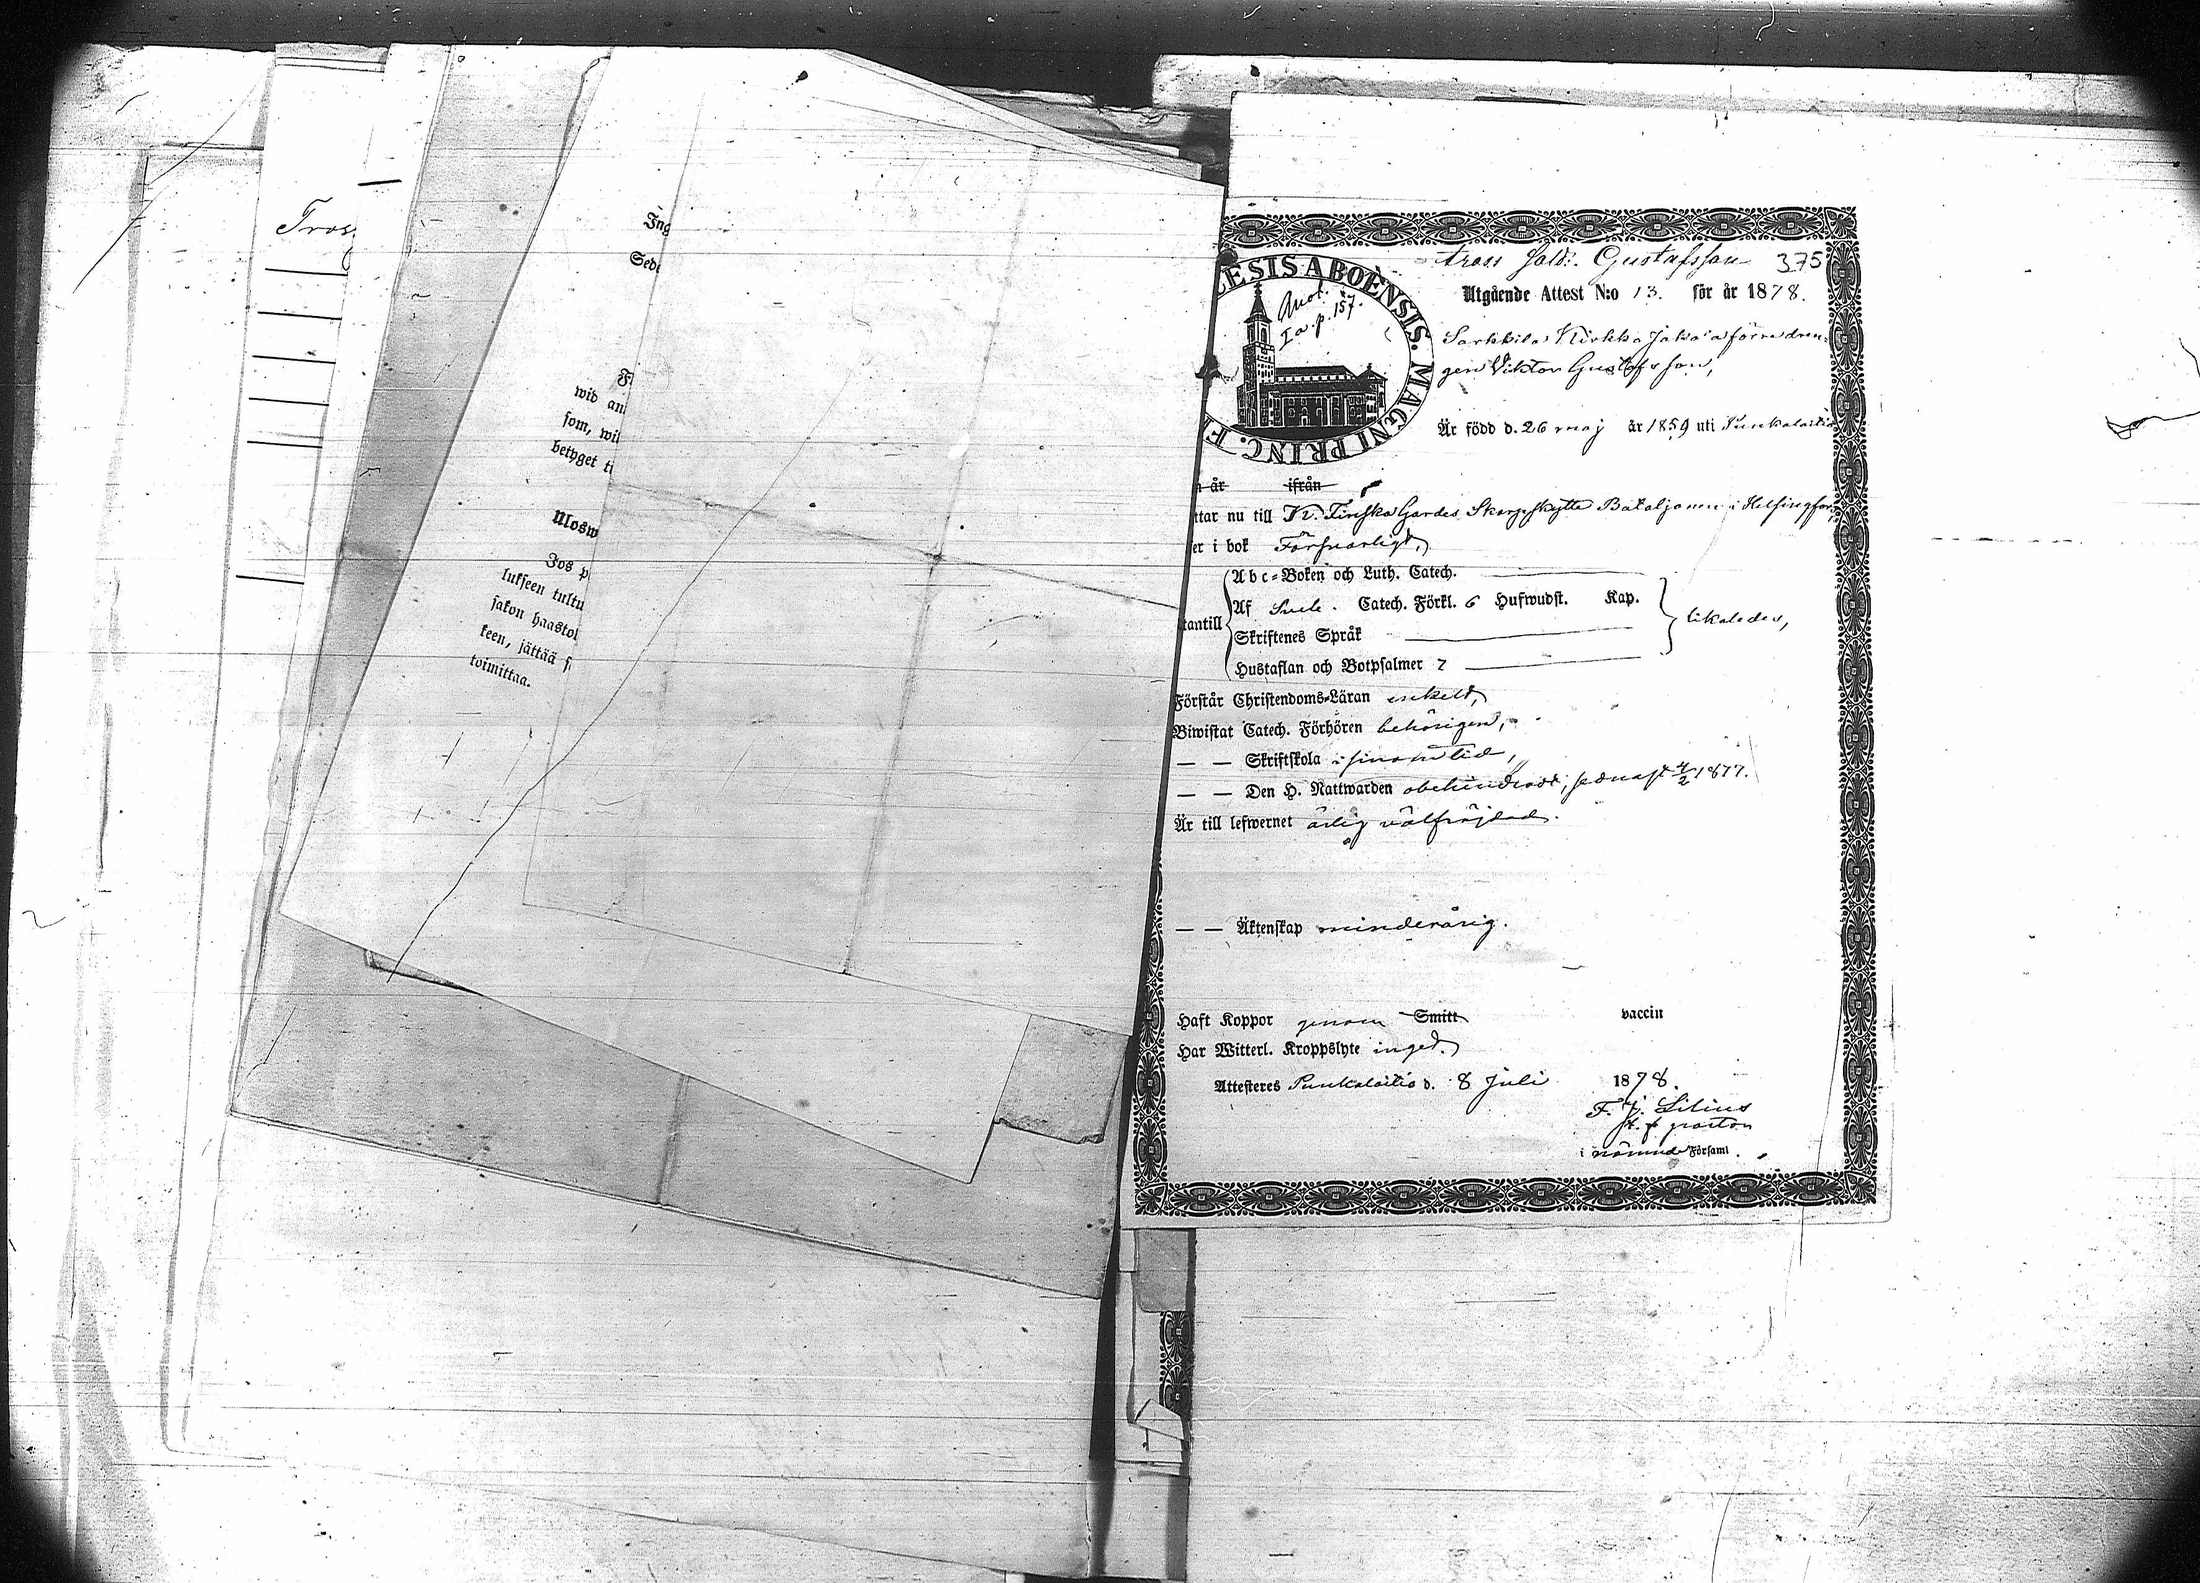 Tross
Ing
Sede
F
wid an
som, wil
betyget ti
Uloswi
Jos p
lukseen tultu
jakon haastol
keen, jättää s
toimittaa.
tross Sold: Gustafsson 375
Utgående Attest N:o 13. för år 1878.
ESIS ABOËNSIS. MAGNI PRINC. F
Anot.
I a. p. 157.
Sarkkila Kirkko Jaho'a förre drän-
gen Viktor Gustafsson,
Är född d. 26 maj år 1859 uti Punkalaitio
n år ifrån
ttar nu till K. Finska Gardes Skarpskytte Bataljonen i Helsingfors,
er i bok Försvarligt,
Abc-Boken och Luth. Catech.
Af Catech. Förkl. 6 Hufwudst. Kap.
tantill likaledes,
Skriftenes Språk
Hustaflan och Botpsalmer 7
Förstår Christendoms-Läran enkelt,
Biwistat Catech. Förhören behörigen,
— — Skriftskola i sinom tid,
— — Den H. Nattwarden obehindrad, sednast 4/2 1877.
Är till lefwernet ärlig välfräjdad.
— — Äktenskap minderårig.
Haft Koppor genom Smitt vaccin
Har Witterl. Kroppslyte inget.
Attesteres Punkalaitio d. 8 Juli 1878.
F. J. Lilius
i nämnde Församl.